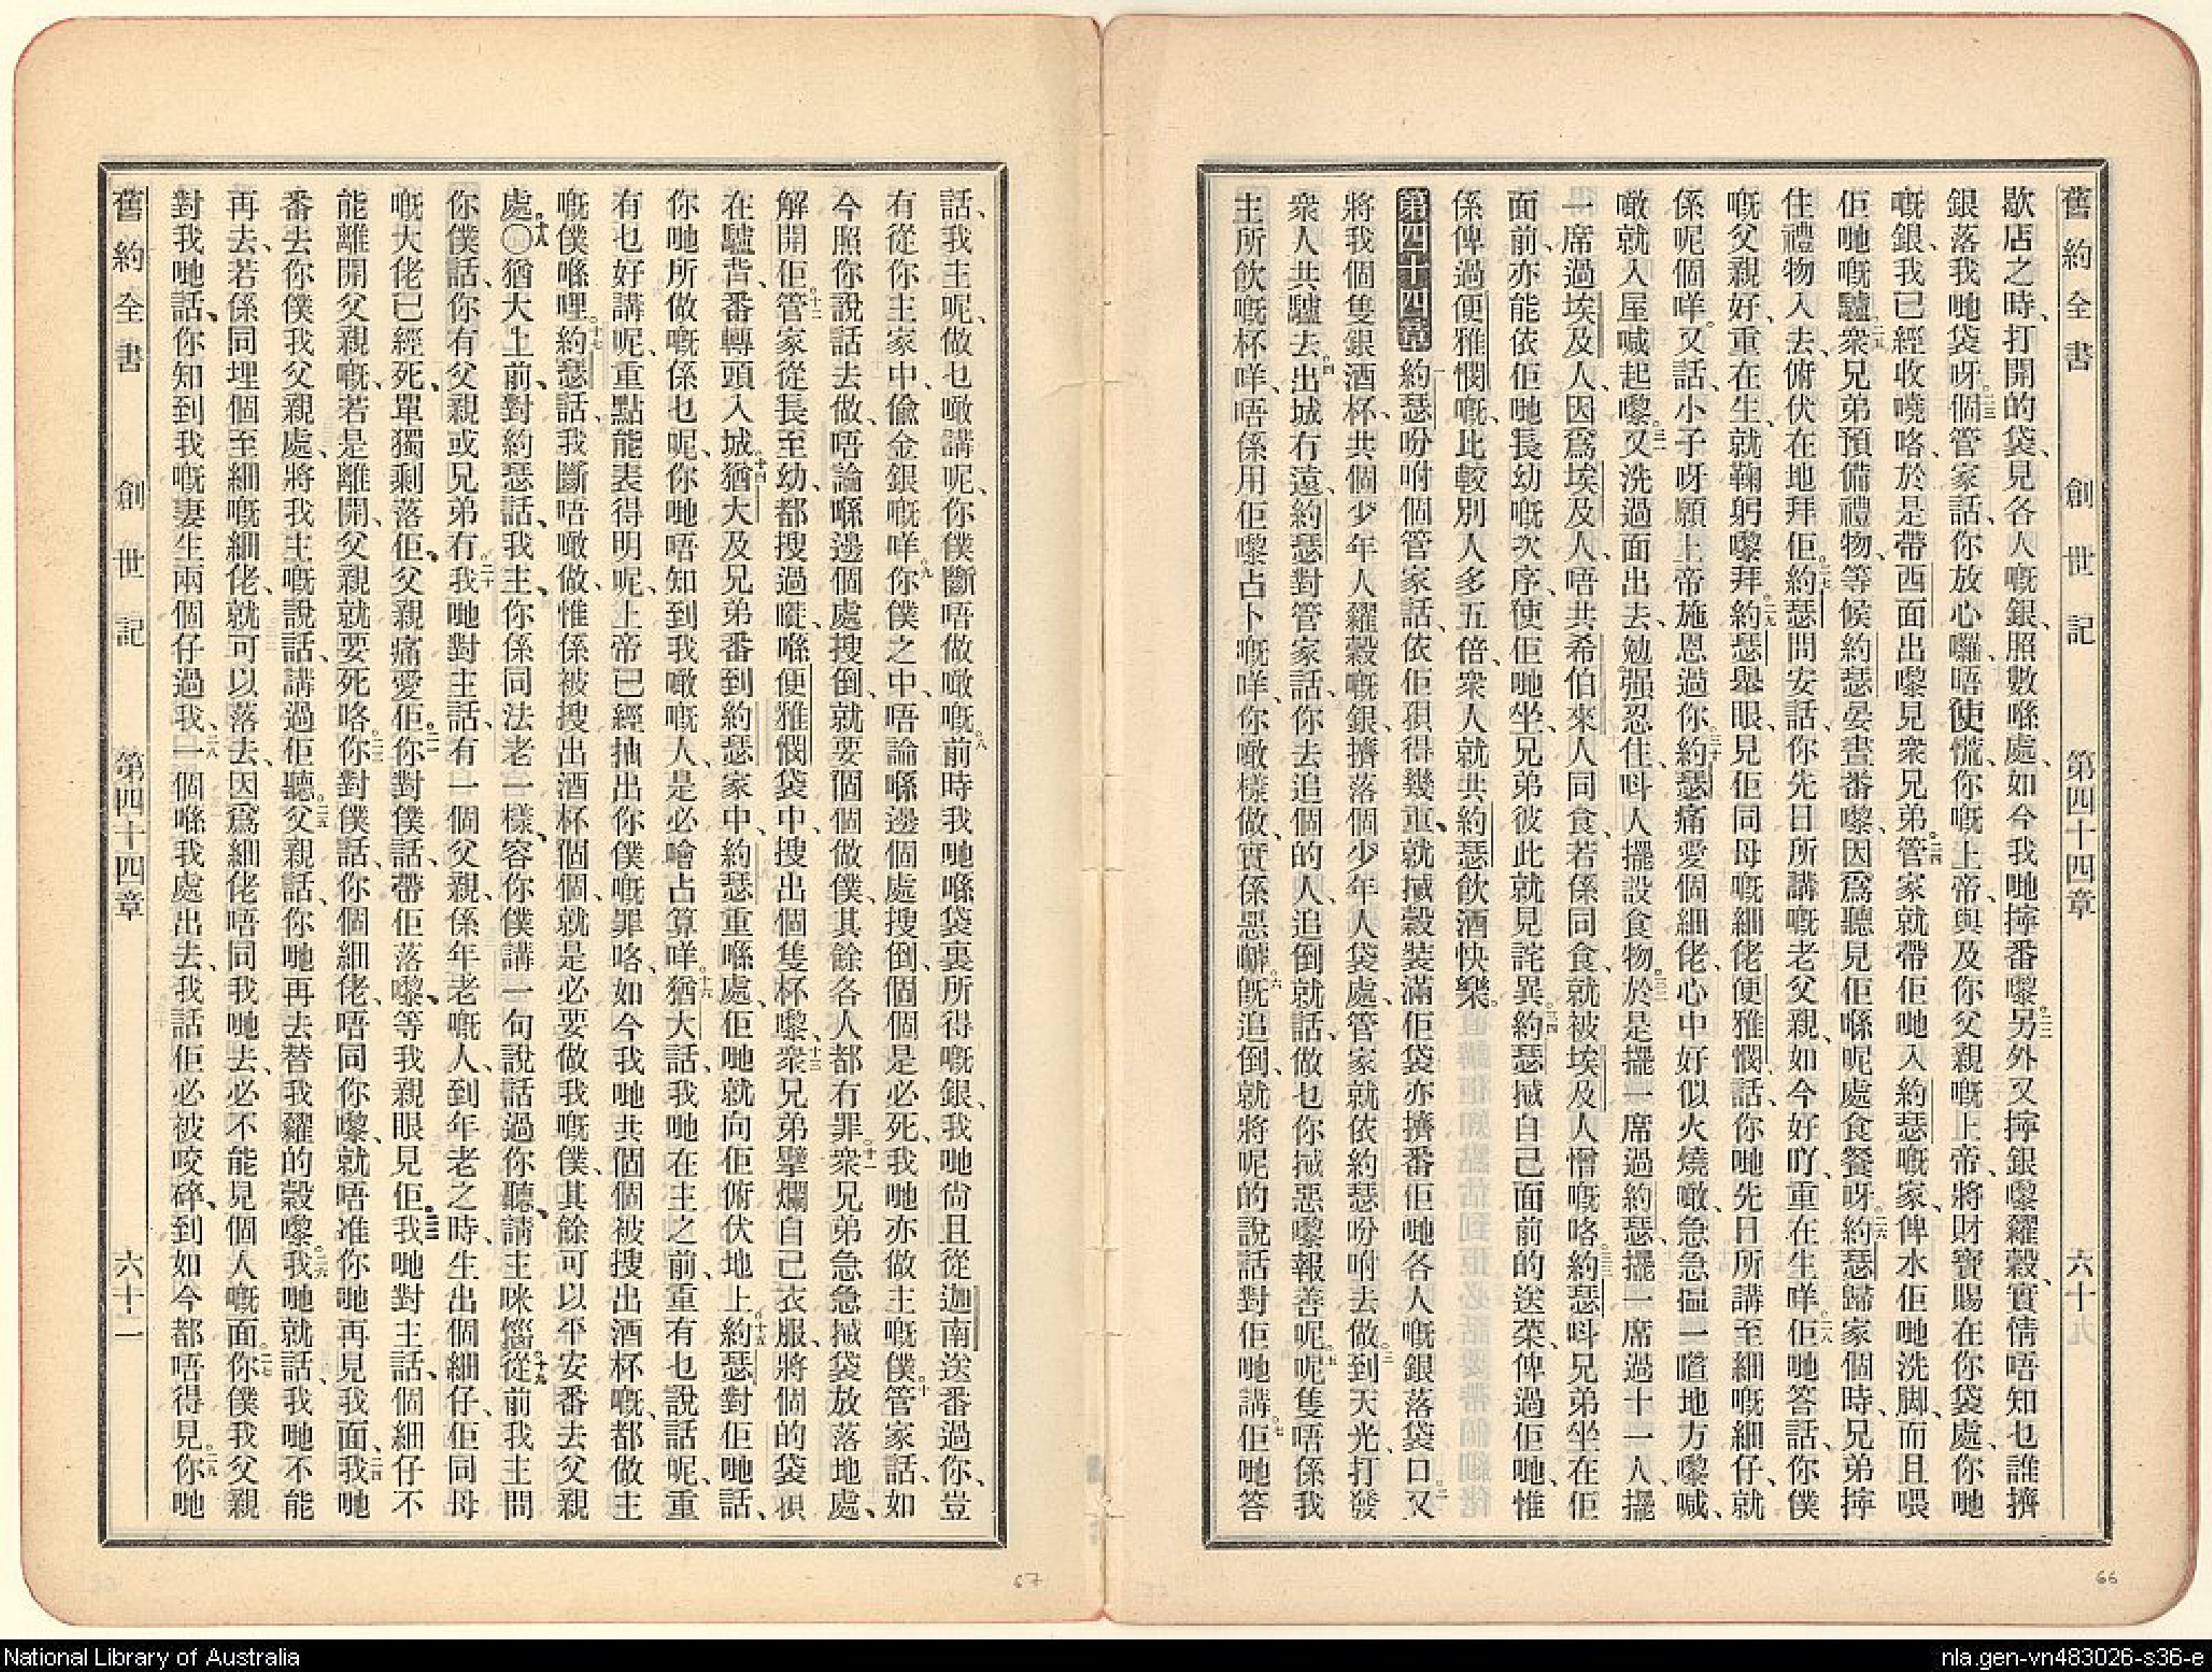 舊約全書　創世記　第四十四章　六十九
歇店之時、打開的袋、見各人嘅銀、照數喺處、如今我哋擰番嚟。二二另外又擰銀嚟糴穀、實情唔知乜誰擠
銀落我哋袋呀。二三個管家話、你放心囉、唔使慌、你嘅上帝、與及你父親嘅上帝、將財寶賜在你袋處、你哋
嘅銀、我已經收嘵咯、於是帶西面出嚟見衆兄弟。二四管家就帶佢哋入約瑟嘅家、俾水佢哋洗脚、而且喂
佢哋嘅驢。二五衆兄弟預備禮物、等候約瑟晏晝番嚟、因爲聽見佢喺呢處食餐呀。二六約瑟歸家個時、兄弟擰
住禮物入去、俯伏在地拜佢。二七約瑟問安話、你先日所講嘅老父親、如今好吖、重在生咩。二八佢哋答話、你僕
嘅父親好、重在生、就鞠躬嚟拜。二九約瑟舉眼、見佢同母嘅細佬便雅憫、話、你哋先日所講至細嘅細仔、就
係呢個咩。又話、小子呀、願上帝施恩過你。三十約瑟痛愛個細佬、心中好似火燒噉、急急搵一噎地方嚟喊、
噉就入屋喊起嚟。三一又洗過面出去、勉强忍住、呌人擺設食物。三二於是擺一席過約瑟、擺一席過十一人、擺
一席過埃及人、因爲埃及人、唔共希伯來人同食、若係同食、就被埃及人憎嘅咯。三三約瑟呌兄弟坐在佢
面前、亦能依佢哋長幼嘅次序、使佢哋坐、兄弟彼此就見詫異。三四約瑟搣自己面前的送菜、俾過佢哋、惟
係俾過便雅憫嘅、比較別人多五倍、衆人就共約瑟飲酒快樂。
第四十四章　一約瑟吩咐個管家話、依佢孭得幾重、就搣穀裝滿佢袋、亦擠番佢哋各人嘅銀落袋口。二又
將我個隻銀酒杯、共個少年人糴穀嘅銀、擠落個少年人袋處、管家就依約瑟吩咐去做。三到天光、打發
衆人共驢去。四出城冇遠、約瑟對管家話、你去追個的人、追倒就話、做乜你搣惡嚟報善呢。五呢隻唔係我
主所飲嘅杯咩、唔係用佢嚟占卜嘅咩、你噉樣做、實係惡嘞。六旣追倒、就將呢的說話對佢哋講。七佢哋答
話、我主呢、做乜噉講呢、你僕斷唔做噉嘅。八前時我哋喺袋裏所得嘅銀、我哋尙且從迦南送番過你、豈
有從你主家中、偸金銀嘅咩。九你僕之中、唔論喺邊個處搜倒、個個是必死、我哋亦做主嘅僕。十管家話、如
今照你說話去做、唔論喺邊個處搜倒、就要個個做僕、其餘各人都冇罪。十一衆兄弟急急搣袋放落地處、
解開佢。十二管家從長至幼、都搜過嘥、喺便雅憫袋中、搜出個隻杯嚟、十三衆兄弟擘爛自己衣服、將個的袋孭
在驢背、番轉頭入城。十四猶大及兄弟番到約瑟家中、約瑟重喺處、佢哋就向佢俯伏地上。十五約瑟對佢哋話、
你哋所做嘅係乜呢、你哋唔知到我噉嘅人、是必噲占算咩。十六猶大話、我哋在主之前、重有乜說話呢、重
有乜好講呢、重點能表得明呢、上帝已經抽出你僕嘅罪咯、如今我哋共個個被搜出酒杯嘅、都做主
嘅僕喺哩。十七約瑟話、我斷唔噉做、惟係被搜出酒杯個個、就是必要做我嘅僕、其餘可以平安番去父親
處。十八〇猶大上前、對約瑟話、我主、你係同法老一樣、容你僕講一句說話過你聽、請主咪惱。十九從前我主問
你僕話、你有父親或兄弟冇。二十我哋對主話、有一個父親、係年老嘅人、到年老之時、生出個細仔、佢同母
嘅大佬已經死、單獨剩落佢、父親痛愛佢。二一你對僕話、帶佢落嚟、等我親眼見佢。二二我哋對主話、個細仔不
能離開父親嘅、若是離開、父親就要死咯。二三你對僕話、你個細佬、唔同你嚟、就唔准你哋再見我面、二四我哋
番去你僕我父親處、將我主嘅說話、講過佢聽。二五父親話、你哋再去替我糴的穀嚟。二六我哋就話、我哋不能
再去、若係同埋個至細嘅細佬、就可以落去、因爲細佬唔同我哋去、必不能見個人嘅面。二七你僕我父親
對我哋話、你知到我嘅妻生兩個仔過我、二八一個喺我處出去、我話佢必被咬碎、到如今都唔得見。二九你哋
舊約全書　創世記　第四十四章　六十一
67
66
National Library of Australia
nla.gen-vn483026-s36-e